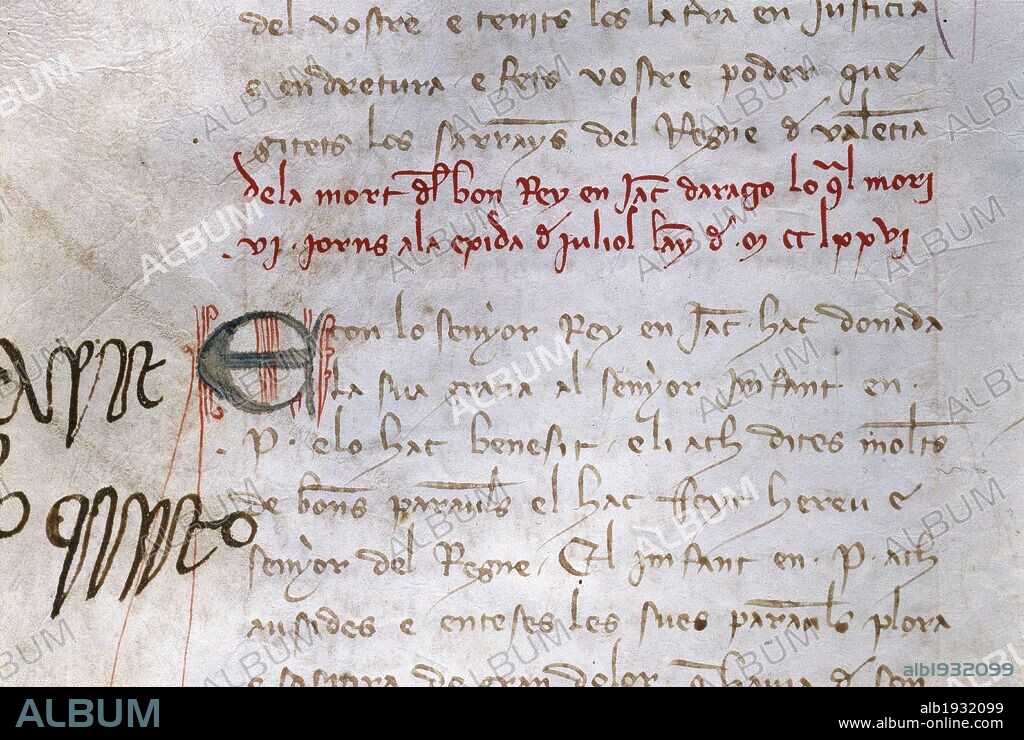 del vostre e tenits los la t̃ra en Justicia
e en dretura · e feis vostre poder que
gitets los sarrayns del Regne d̃ valẽcia
dela mort d̃l bon Rey en Jac̃ darago lo q̃l mori
·vi· jorns a la exida d̃ juliol lãy d̃ · m̃ cc lxxvi
E con lo senỳor Rey en Jac̃ · hac donada
la sua gracia al senỳor Infant en ·
· P · e lo hac beneșit · e li ach dites molts
de bons paraul̃s el hac ffeyt hereu e
senỳor del Regne · El Infant en · P · ach
ausides e enteses les sues paraul̃s plora
de gran dolor
ALBUM
alb1932099
alb1932099
www.album-online.com